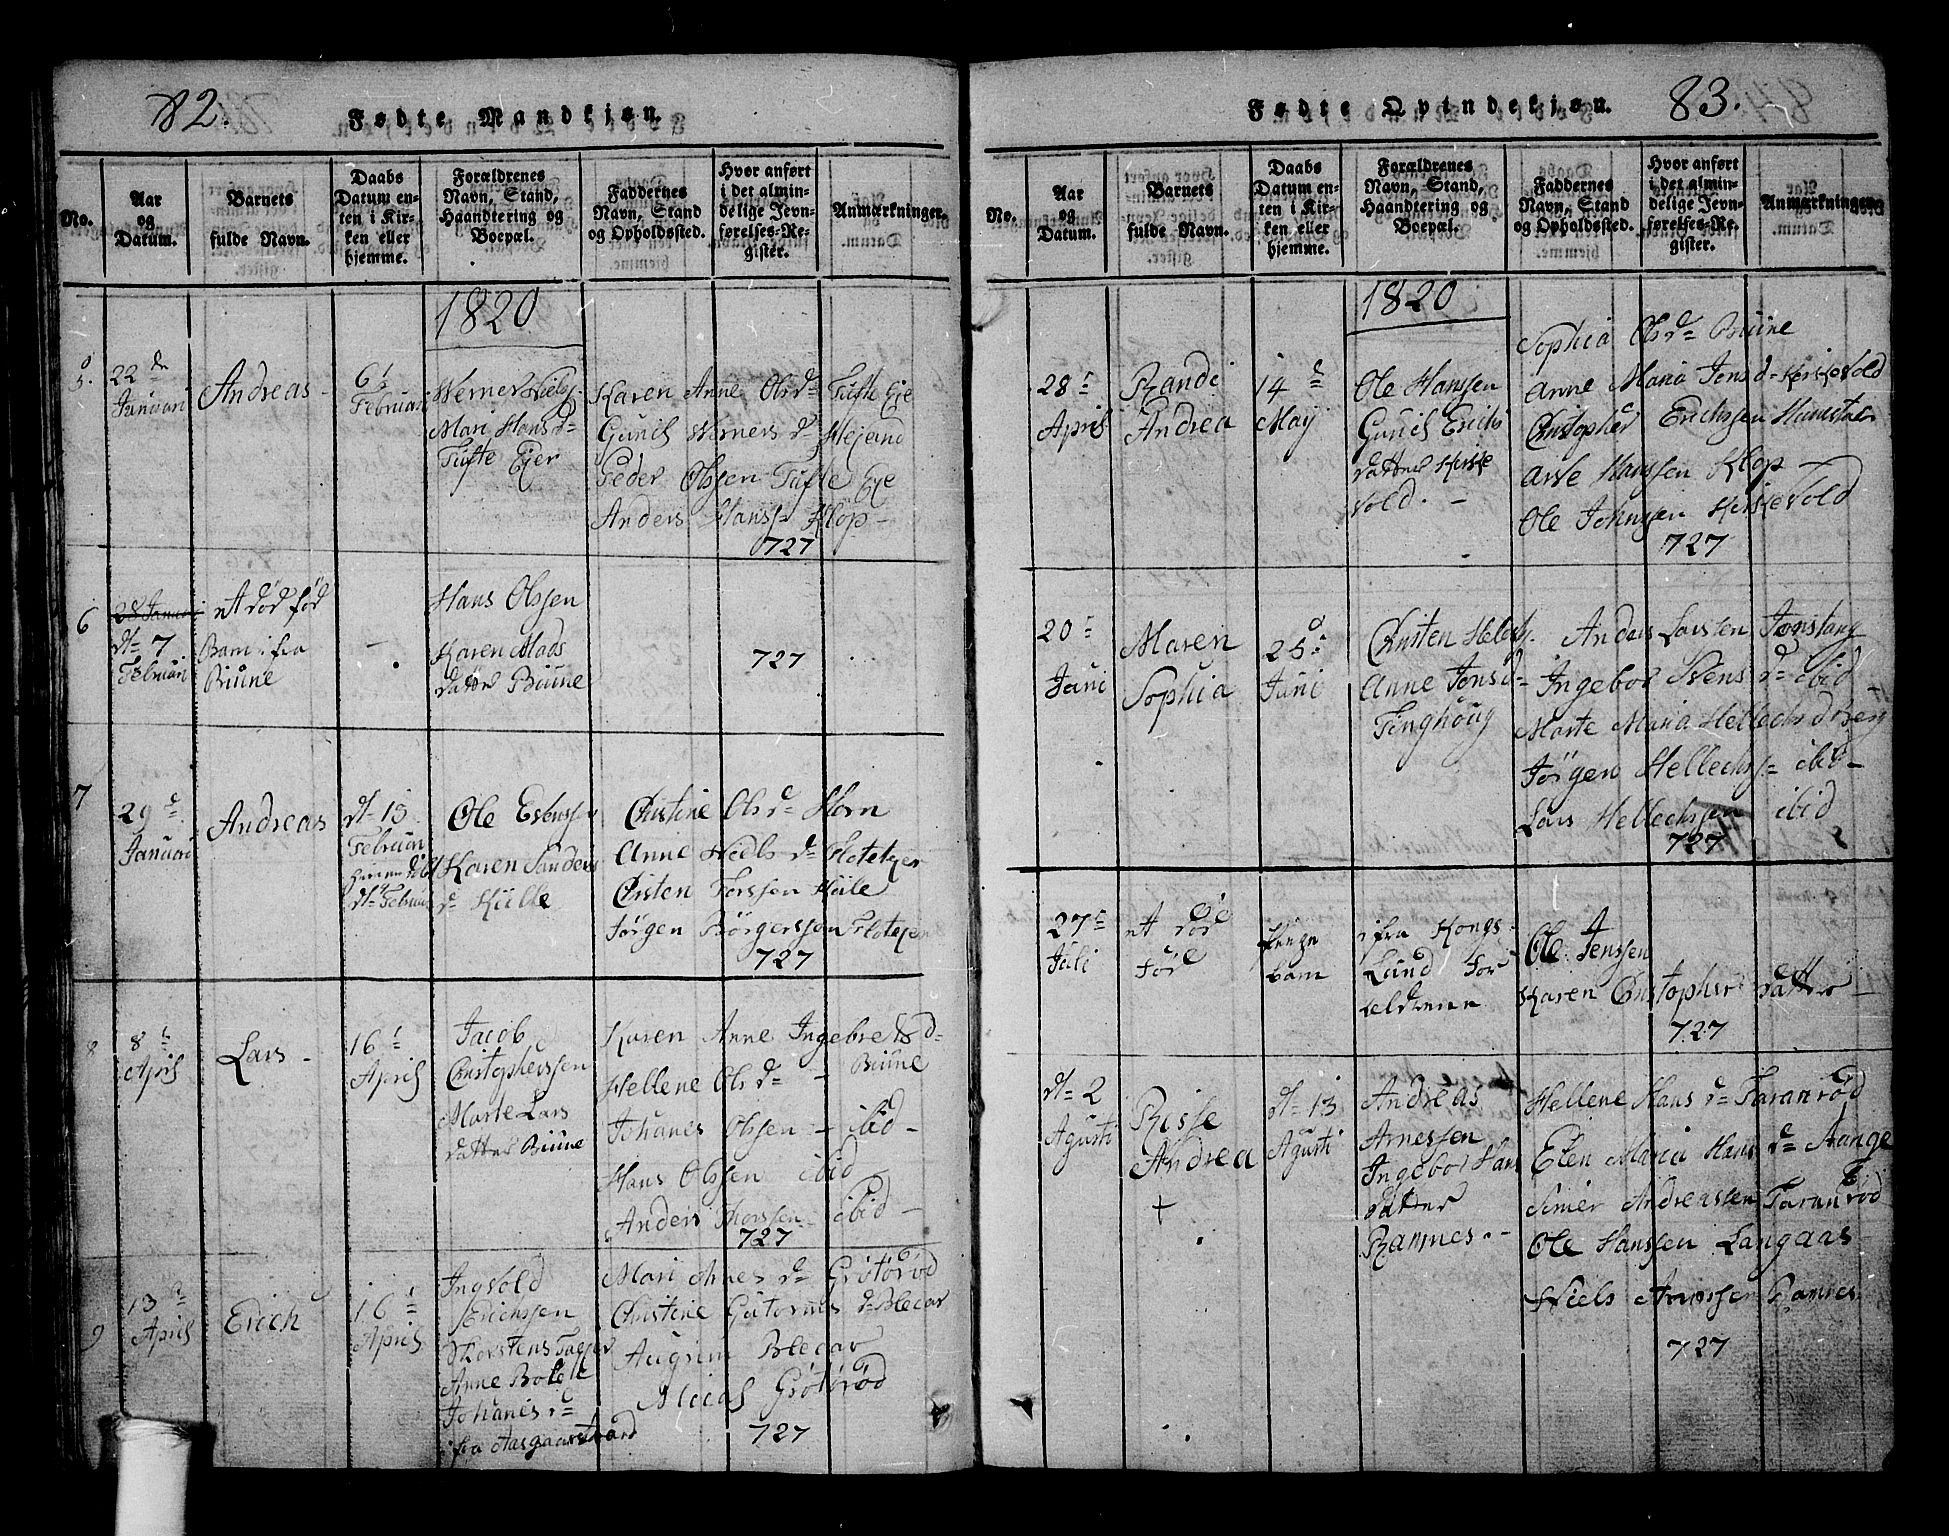 82.
Fødte Mandkjøn.
No.
Aar og Datum.
Barnets fulde Navn.
Daabs Datum enten i Kirken eller hjemme.
Forældrenes Navn, Stand, Haandtering og Boepæl.
Faddernes Navn, Stand og Opholdssted.
Hvor anført i det almindelige Jevnførelses-Register.
Anmærkninger.
1820
5.
22de
Januari
Andreas -
6t
Februari
Mari Hansd=
Tufte Ejer
Karen Anne Olsd= Tufte Eje
Gunil Werners d=
Peder Olssen Tufte Eje
Anders Hanss= Klop -
727
6
28 Januari
d= 7
Februari
et død fød
Barn ifra
Biüne
Hans Olssen
Karen Mads
datter Biüne
727
7
29
Januari
Andreas
d= 13
Februari
Ole Esbenssen
Karen Anders
d=
Christine Ols d= Horn
Anne Niels d=
Christen
Jørgen Børgerssen
727
8
8
April
Lars -
16
April
Jacob
Christopherssen
Marte Lars
datter Biüne
Karen Anne Ingebretsd=
Biüne
Hellene Ols d= -
Johanes Olssen - ibid -
Hans Olssen ibid
Anders Thorssen - ibid -
727
9
13
April
Erich
16
April
Ingvold
Erichssen
Anne
Johanes d=
ifra Aasgaarstrand
Mari Arnes d= Grötöröd
Christine
Grötöröd
727
Fødte Qvindekjøn.
83.
No.
Aar og Datum.
Barnets fulde Navn.
Daabs Datum enten i Kirken eller hjemme.
Forældrenes Navn, Stand, Haandtering og Boepæl.
Faddernes Navn, Stand og Opholdssted.
Hvor anført i det almindelige Jevnførelses-Register.
Anmærkninger.
1820
28
April
Randi
Andrea
14
May
Ole Hanssen
Gunil Erichs
datter Kirke
vold. -
Sophia Ols d= Biüne
Anne Maria Jensd= Kirkevold
Christopher Erichssen
Arve Hanssen Klop -
Ole Johnssen Kirkevold
727
20
Juni
Maren
Sophia
25
Juni
Christen Hellech.
Anne Jonsd=
Tinghöug
Anders Larssen Jonstang
Ingebor Svens d= ibid
Marte Maria Hellechsd Berg
Jörgen Hellechss= ibid -
Lars Hellechssen ibid
727
27
Juli
et död
föd
Pinge
barn
ifra Kongs-
Lund For
eldrene
Ole Jenssen
Karen Christopher datter -
727
d= 2
Agusti
Risse
Andrea
+
d= 13
Agusti
Andreas
Arnessen
Ingebor Hans
datter
Ramnes. -
Hellene Hans d= Taranröd
Elen Maria Hans d= Aange
Simer Andreassen Taranröd
Ole Hanssen Langaas
Niels Arnessen Ramnes
727